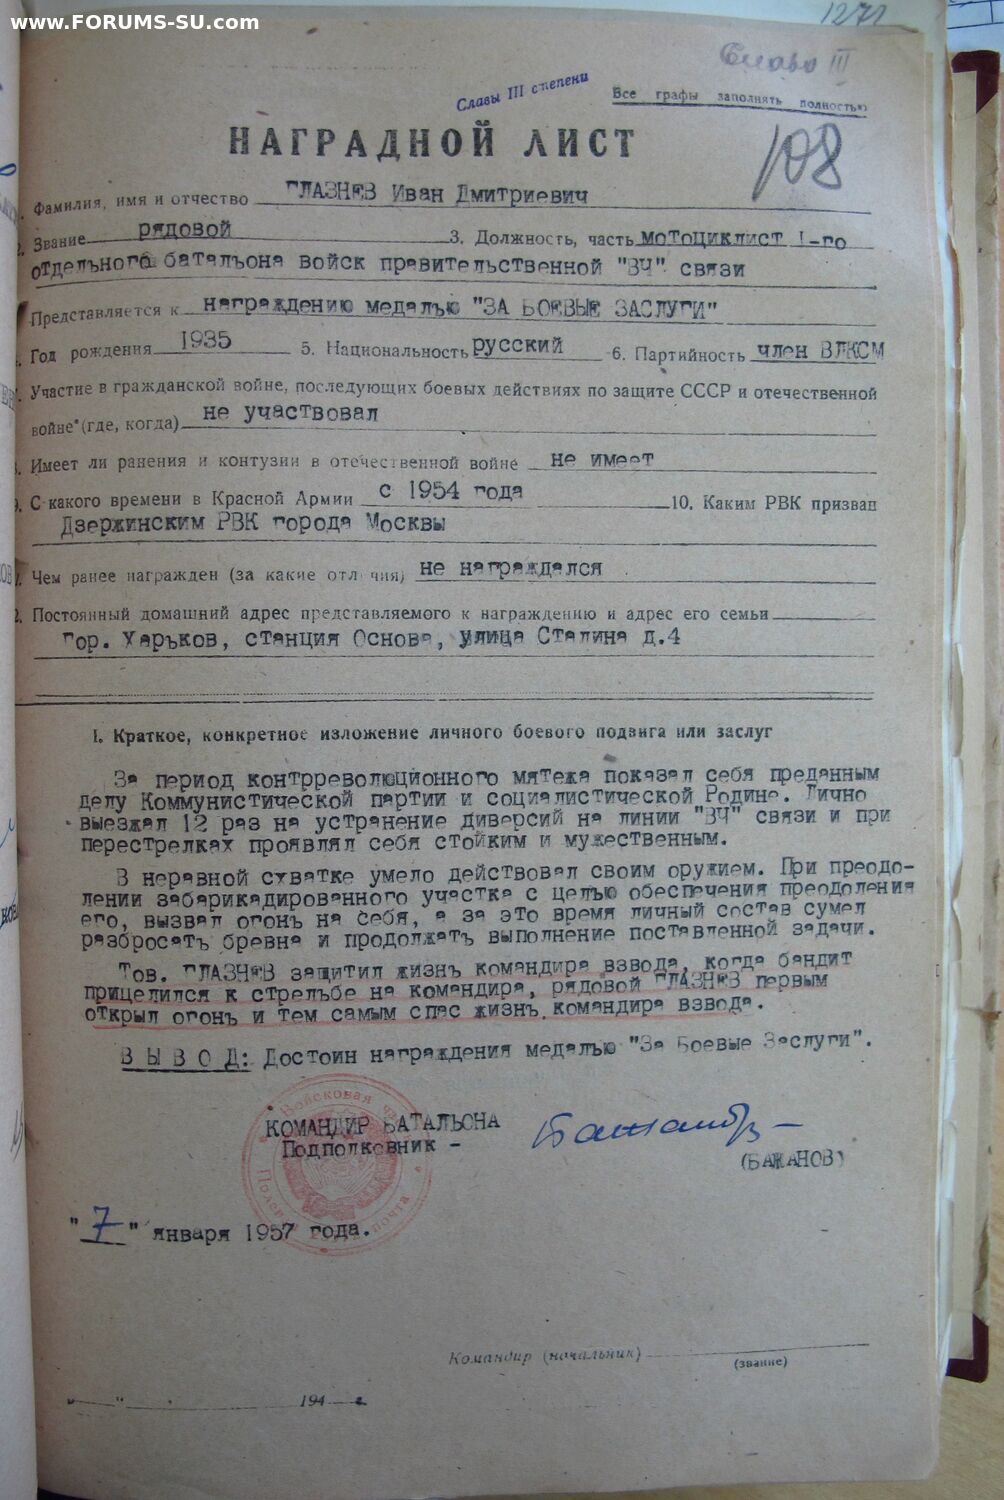 www.FORUMS-SU.com
1271
Слава III
Славы III степени
Все графы заполнять полностью
НАГРАДНОЙ ЛИСТ
108
1. Фамилия, имя и отчество ГЛАЗНЕВ Иван Дмитриевич
2. Звание рядовой 3. Должность, часть мотоциклист I-го
отдельного батальона войск правительственной "ВЧ" связи
Представляется к награждению медалью "ЗА БОЕВЫЕ ЗАСЛУГИ"
4. Год рождения 1935 5. Национальность русский 6. Партийность член ВЛКСМ
7. Участие в гражданской войне, последующих боевых действиях по защите СССР и отечественной
войне (где, когда) не участвовал
8. Имеет ли ранения и контузии в отечественной войне не имеет
9. С какого времени в Красной Армии с 1954 года 10. Каким РВК призван
Дзержинским РВК города Москвы
11. Чем ранее награжден (за какие отличия) не награждался
12. Постоянный домашний адрес представляемого к награждению и адрес его семьи
гор. Харьков, станция Основа, улица Сталина д.4
I. Краткое, конкретное изложение личного боевого подвига или заслуг
За период контрреволюционного мятежа показал себя преданным
делу Коммунистической партии и социалистической Родине. Лично
выезжал 12 раз на устранение диверсий на линии "ВЧ" связи и при
перестрелках проявлял себя стойким и мужественным.
В неравной схватке умело действовал своим оружием. При преодо-
лении забарикадированного участка с целью обеспечения преодоления
его, вызвал огонь на себя, а за это время личный состав сумел
разбросать бревна и продолжать выполнение поставленной задачи.
Тов. ГЛАЗНЕВ защитил жизнь командира взвода, когда бандит
прицелился к стрельбе на командира, рядовой ГЛАЗНЕВ первым
открыл огонь и тем самым спас жизнь командира взвода.
ВЫВОД: Достоин награждения медалью "За Боевые Заслуги".
Войсковая
Полевая почта
КОМАНДИР БАТАЛЬОНА
Подполковник -
(БАЖАНОВ)
"7" января 1957 года.
Командир (начальник)
(звание)
" " 194 г.